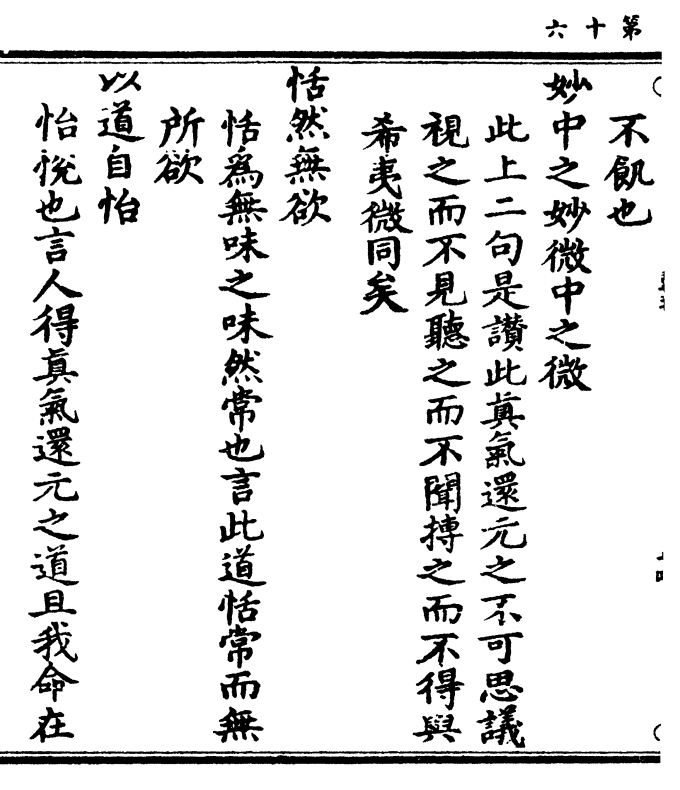 第十六
不飢也
妙中之妙微中之微
此上二句是讚此眞氣還元之不可思議
視之而不見聽之而不聞搏之而不得與
希夷微同矣
恬然無欲
恬爲無味之味然常也言此道恬常而無
所欲
以道自怡
怡悅也言人得眞氣還元之道且我命在